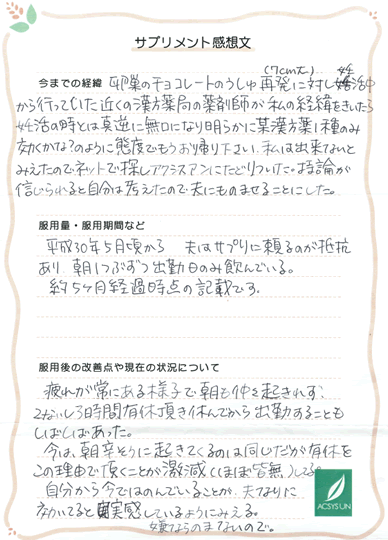 サプリメント感想文
(7cm大)
今までの経緯 卵巣のチョコレートのうしゅ再発に対し妊活中
から行っていた近くの漢方薬局の薬剤師が私の経緯をきいたら
妊活の時とは真逆に無口になり明らかに某漢方薬1種のみ
効くかな?のように態度でもうお帰り下さい、私は出来ないと
みえたのでネットで探しアクシスアンにたどりついた。持論が
信じられると自分は考えたので夫にものませることにした。
服用量・服用期間など
平成30年5月頃から 夫はサプリに頼るのが抵抗
あり 朝1つぶずつ出勤日のみ飲んでいる。
約5ヶ月経過時点の記載です。
服用後の改善点や現在の状況について
疲れが常にある様子で朝も仲々起きれず、
2ないし3時間有休頂き休んでから出勤することも
しばしばあった。
今は、朝辛そうに起きてくるのは同じだが有休を
この理由で頂くことが激減(ほぼ皆無)してる。
自分から今ではのんでいることが、夫なりに
効いてると実感しているようにみえる。
嫌ならのまないので。
ACSYSUN